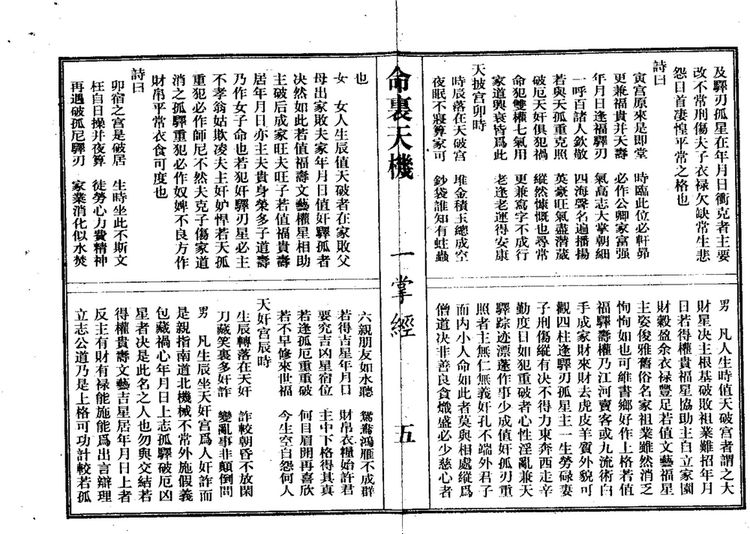 及驛刃孤星在年月日衝克者主要
改不常刑傷夫子衣禄欠缺常生悲
怨日首凄惶平常之格也
詩曰
寅宫原來是即堂 時臨此位必軒昂
更兼福貴并天壽 必作公卿家富强
年月日逢福驛刃 氣高志大掌朝綱
一呼百諸人欽敬 四海聲名遍播揚
若與天孤重克照 英豪旺氣盡潜蔵
破厄天奸俱犯禍 縱然慷慨也尋常
命犯雙權七氣用 更兼寫字不成行
家道興衰皆爲此 老逢老運得安康
天披宫卯時
時辰落在天破宫 堆金積玉總成空
夜眠不寢算家可 鈔袋誰知有蛀蟲
男 凡人生時值天破宫者謂之大
財星決主根基破敗祖業難招年月
日若得權貴福星協助主白立家園
財穀盈余衣禄豐足若值文藝福星
主姿俊雅舊俗名家祖業雖然消乏
恂恂如也可維書鄉好作上格若值
福驛壽權乃江河賣客或九流術白
手成家財來財去虎皮羊質外貌可
觀四柱逢驛刃孤星主一生勞碌妻
子刑傷縱有決不得力東奔西走辛
勤度日如犯重破者心性淫亂兼天
驛踪迹漂蓬作事少成值奸孤刃重
照者主無仁無義奸孔不端外君子
而内小人命如此者莫與相處縱爲
僧道決非善良貪熾盛必少慈心者
命裏天機 一掌經 五
也
女 女人生辰值天破者在家敗父
母出家敗夫家年月日值奸驛孤者
決然如此若值福壽文藝權星相助
主破后成家旺夫旺子若值福貴壽
居年月日亦主夫貴身榮多子道壽
乃作女子命也若犯奸驛刃星必主
不孝翁姑欺凌夫主奸妒悍若天孤
重犯必作師尼不然夫克子傷家道
消乏孤驛重犯必作奴婢不良方作
財帛平常衣食可度也
詩曰
卯宿之宫是破居 生時坐此不斯文
枉自日操并夜算 徒勞心力費精神
再遇破孤厄驛刃 家業消化似水焚
六親朋友如水聽 鴛鴦鴻雁不成群
若得吉星年月日 財帛衣糧始許君
要究吉凶星宿位 主中下格得其真
若逢孤厄重重破 何目眉開再喜欣
若不早修來世福 今生空白怨何人
天奸宫辰時
生辰轉落在天奸 詐較朝昏不放閑
刀藏笑裏多奸詐 變亂事非顛倒問
男 凡生辰坐天奸宫爲人奸詐而
是親指南道北機械不常外施假義
包藏禍心年月日上忐孤驛破厄凶
星者決是此名之人也勿與交結若
得權貴壽文藝吉星居年月日上者
反主有財有禄能施能爲出言辯理
立志公道乃是上格可功計較若孤